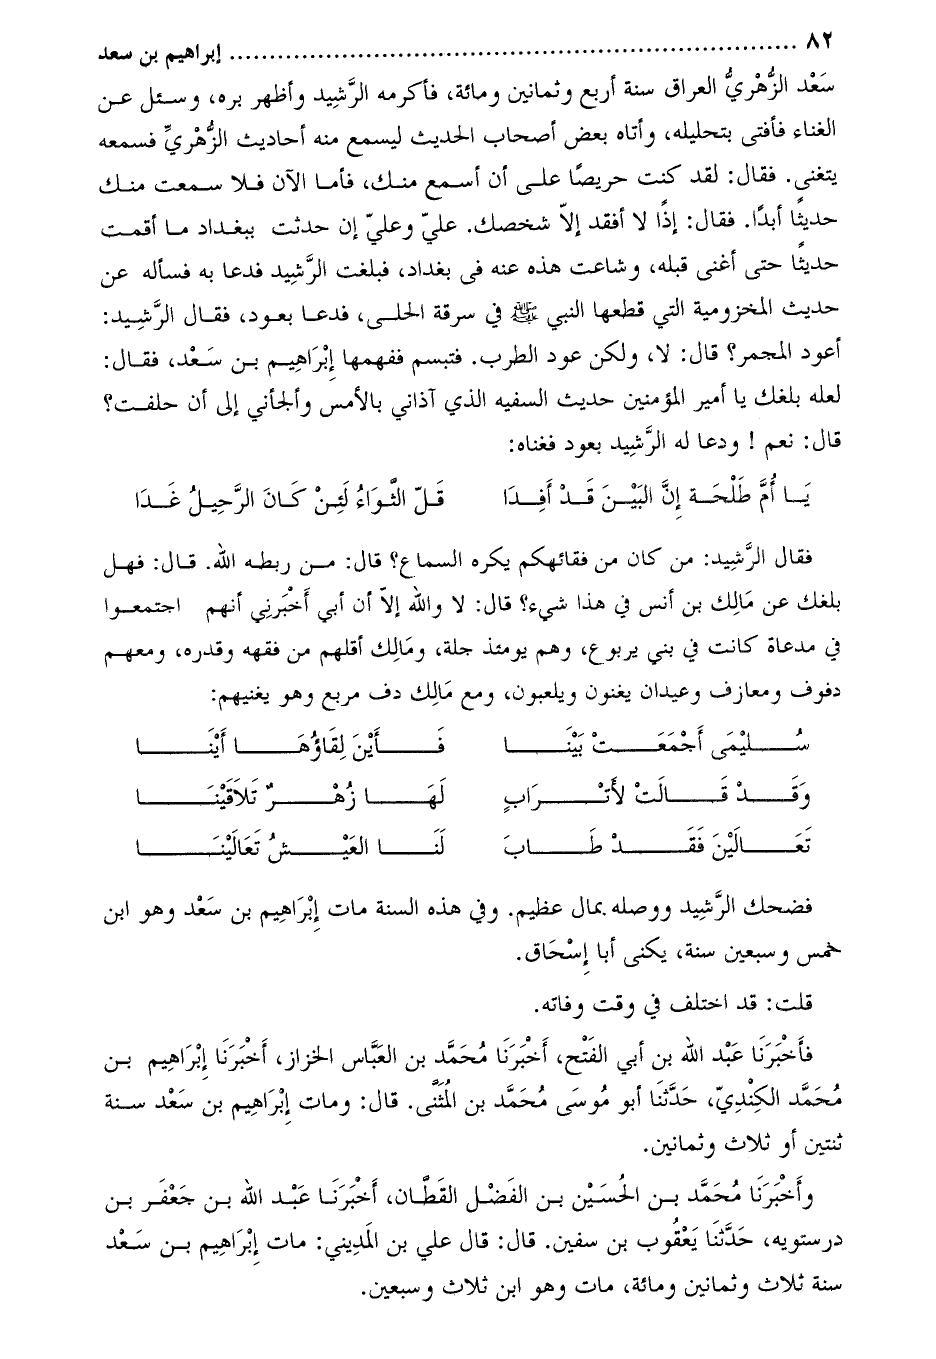 ٨٢ ........................................................ إبراهيم بن سعد
سَعْد الزُّهْرِيُّ العراق سنة أربع وثمانين ومائة، فأكرمه الرَّشِيد وأظهر بره، وسئل عن
الغناء فأفتى بتحليله، وأتاه بعض أصحاب الحديث ليسمع منه أحاديث الزُّهْرِيِّ فسمعه
يتغنى. فقال: لقد كنت حريصًا على أن أسمع منك، فأما الآن فلا سمعت منك
حديثًا أبدًا. فقال: إذًا لا أفقد إلاّ شخصك. عليّ وعليّ إن حدثت ببغداد ما أقمت
حديثًا حتى أغنى قبله، وشاعت هذه عنه فى بغداد، فبلغت الرَّشِيد فدعا به فسأله عن
حديث المخزومية التي قطعها النبي ﷺ في سرقة الحلى، فدعا بعود، فقال الرَّشِيد:
أعود المجمر؟ قال: لا، ولكن عود الطرب. فتبسم ففهمها إِبْرَاهِيم بن سَعْد، فقال:
لعله بلغك يا أمير المؤمنين حديث السفيه الذي آذاني بالأمس وألجأني إلى أن حلفت؟
قال: نعم ! ودعا له الرَّشِيد بعود فغناه:
يَا أُمَّ طَلْحَة إِنَّ البَيْنَ قَدْ أَفِدَا قَلّ الثَّوَاءُ لَئِنْ كَانَ الرَّحِيلُ غَدَا
فقال الرَّشِيد: من كان من فقائهكم يكره السماع؟ قال: من ربطه الله. قال: فهل
بلغك عن مَالِك بن أنس في هذا شيء؟ قال: لا والله إلاّ أن أبي أَخْبَرنِي أنهم اجتمعوا
في مدعاة كانت في بني يربوع، وهم يومئذ جلة، ومَالِك أقلهم من فقهه وقدره، ومعهم
دفوف ومعازف وعيدان يغنون ويلعبون، ومع مَالِك دف مربع وهو يغنيهم:
سُلَيْمَى أَجْمَعَتْ بَيْنَا فَأَيْنَ لِقَاؤُهَا أَيْنَا
وَقَدْ قَالَتْ لأَتْرَابٍ لَهَا زُهْرٌ تَلاَقَيْنَا
تَعَالَيْنَ فَقَدْ طَابَ لَنَا العَيْشُ تَعَالَيْنَا
فضحك الرَّشِيد ووصله بمال عظيم. وفي هذه السنة مات إِبْرَاهِيم بن سَعْد وهو ابن
خمس وسبعين سنة، يكنى أبا إِسْحَاق.
قلت: قد اختلف في وقت وفاته.
فأَخْبَرَنَا عَبْد الله بن أبي الفَتْح، أَخْبَرَنَا مُحَمَّد بن العَبَّاس الخزاز، أَخْبَرَنَا إِبْرَاهِيم بن
مُحَمَّد الكِنْدِيّ، حَدَّثَنَا أبو مُوسَى مُحَمَّد بن المُثَنَّى. قال: ومات إِبْرَاهِيم بن سَعْد سنة
ثنتين أو ثلاث وثمانين.
وأَخْبَرَنَا مُحَمَّد بن الحُسَيْن بن الفَضْل القَطَّان، أَخْبَرَنَا عَبْد الله بن جَعْفَر بن
درستويه، حَدَّثَنَا يَعْقُوب بن سفين. قال: قال علي بن المَدِيني: مات إِبْرَاهِيم بن سَعْد
سنة ثلاث وثمانين ومائة، مات وهو ابن ثلاث وسبعين.